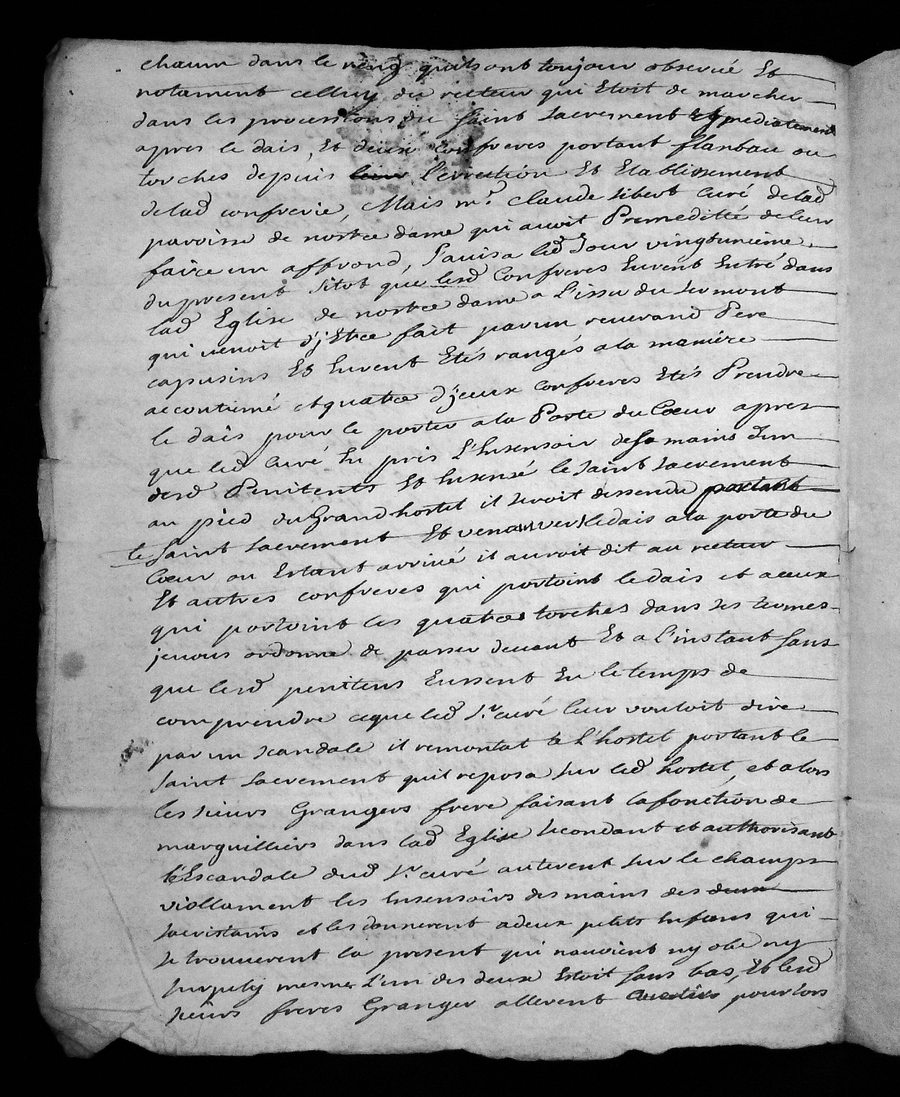 chacun dans le rang quils ont toujour observée Et
notament celluy du recteur qui Etoit de marcher
dans les processions du saint sacrement Et
apres le dais, Et deux confreres portant flanbau ou
torches depuis l'erection Et Etablissement
delad confrerie, Mais mr. Claude sibert Curé delad
parroisse de nostre dame qui avoit Premedité de leur
faire un affrond, s'avisa led Jour vingtunieme
du present sitot que lesd Confreres Eurent Entré dans
lad Eglise de nostre dame a l'issu du sermont
qui venoit d'j Etre fait par un reverand Pere
capusins Et Eurent Etes rangés a la maniere
accoutumé et quatre d'jceux confreres Etés Prendre
le dais pour le porter a la Porte du Cœur apres
que led Curé Eu pris l'Ensensoir de sa mains d'un
desd Penitents Et Ensensé le saint sacrement
au pied du Grand hostel il seroit dessendu portant
le saint sacrement Et venant vers le dais a la porte du
Cœur ou Estant arrivé il auroit dit au recteur
Et autres confreres qui portoint le dais et a ceux
qui portoint les quatre torches dans ses termes
je vous ordonne de passer devant Et a l'instant sans
que lesd penitens Eussent Eu le temps de
comprendre ce que led sr. curé leur vouloit dire
par un scandale il remontat a l'hostel portant le
saint sacrement quil reposa sur led hostel, et alors
les sieurs Grangers frere faisant la fonction de
marguilliers dans lad Eglise secondant et authorisant
l'Escandale dud sr. curé auterent sur le champs
viollament les Ensensoirs des mains des deux
sacristains et les donnerent a deux petits Enfans qui
se trouverent la present qui navoient ny obe ny
surpely mesme l'un des deux Estoit sans bas, Et lesd
sieurs freres Granger allerent pour lors